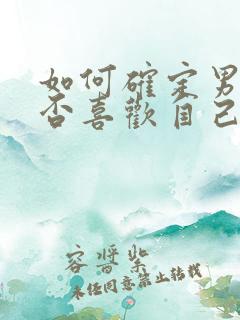 如何確定男
否喜歡自己
容嚣紮
未经同意禁止转载